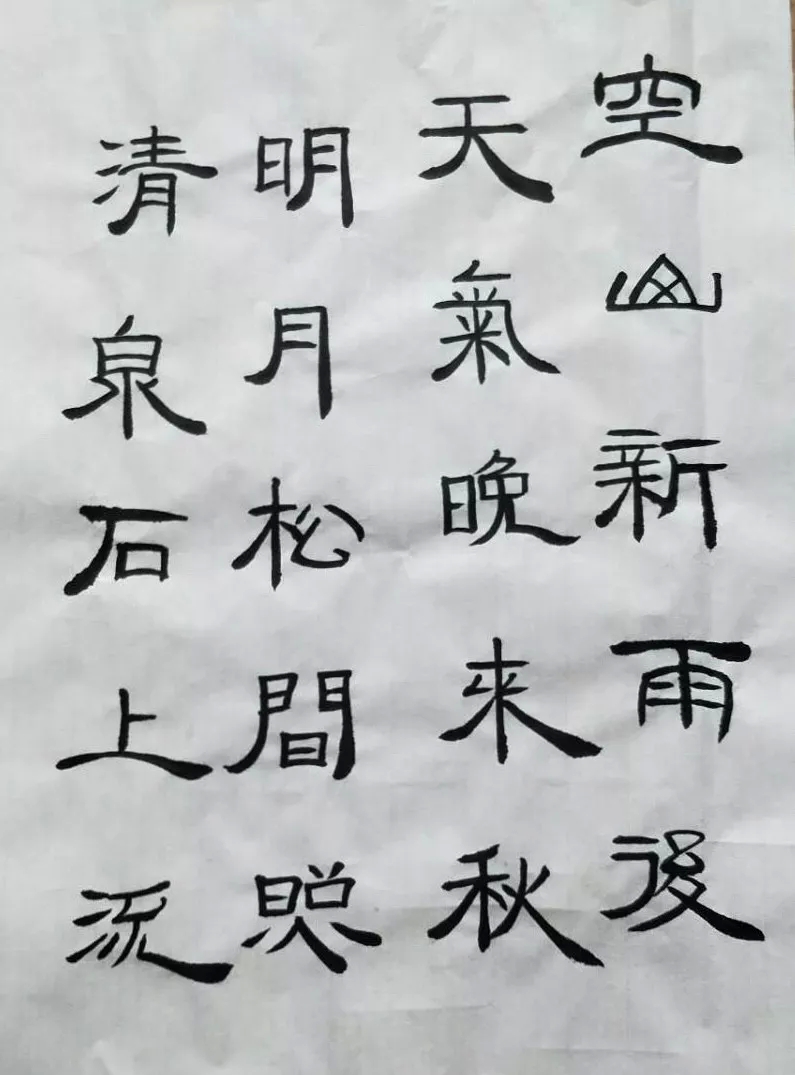 空山新雨後
天氣晚来秋
明月松間照
清泉石上流